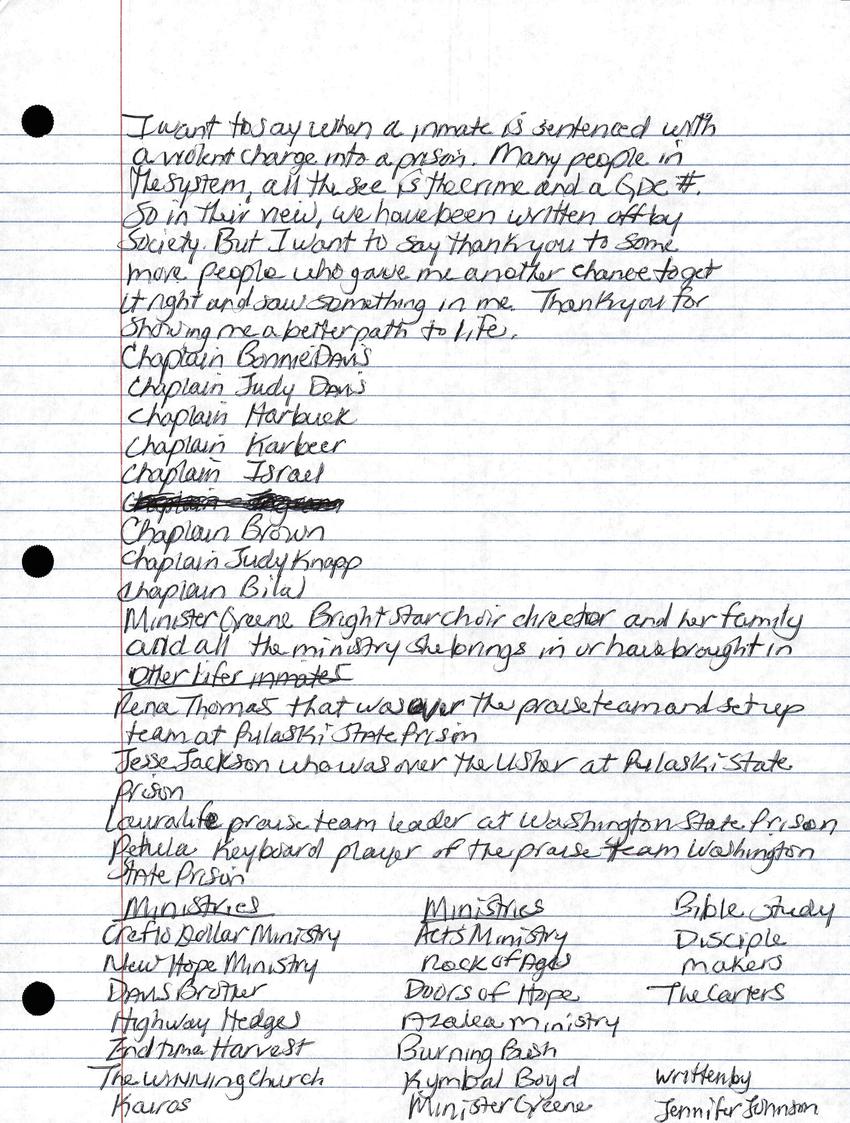 I want to say when a inmate is sentenced with
a violent charge into a prison. Many people in
the system, all the see is the crime and a GDC #.
So in their view, we have been written off by
society. But I want to say thank you to some
more people who gave me another chance to get
it right and saw something in me. Thank you for
showing me a better path to life.
Chaplain Bonnie Davis
Chaplain Judy Davis
Chaplain Harbuck
Chaplain Karbeer
Chaplain Israel
Chaplain Brown
Chaplain Judy Knapp
Chaplain Bilal
Minister Greene Bright Star choir director and her family
and all the ministry she brings in or have brought in
Other Lifer inmates
Rena Thomas that was over the praise team and set up
team at Pulaski State Prison
Jesse Jackson who was over the Usher at Pulaski State
Prison
Lauralife praise team leader at Washington State Prison
Petula Keyboard player of the praise team Washington
State Prison
Ministries Ministries Bible Study
Creflo Dollar Ministry Acts Ministry Disciple
New Hope Ministry Rock of Ages makers
Davis Brother Doors of Hope The Carters
Highway Hedges Azalea ministry
Endtime Harvest Burning Bush
The Winning Church Kymbal Boyd written by
Kairos Minister Greene Jennifer Johnson